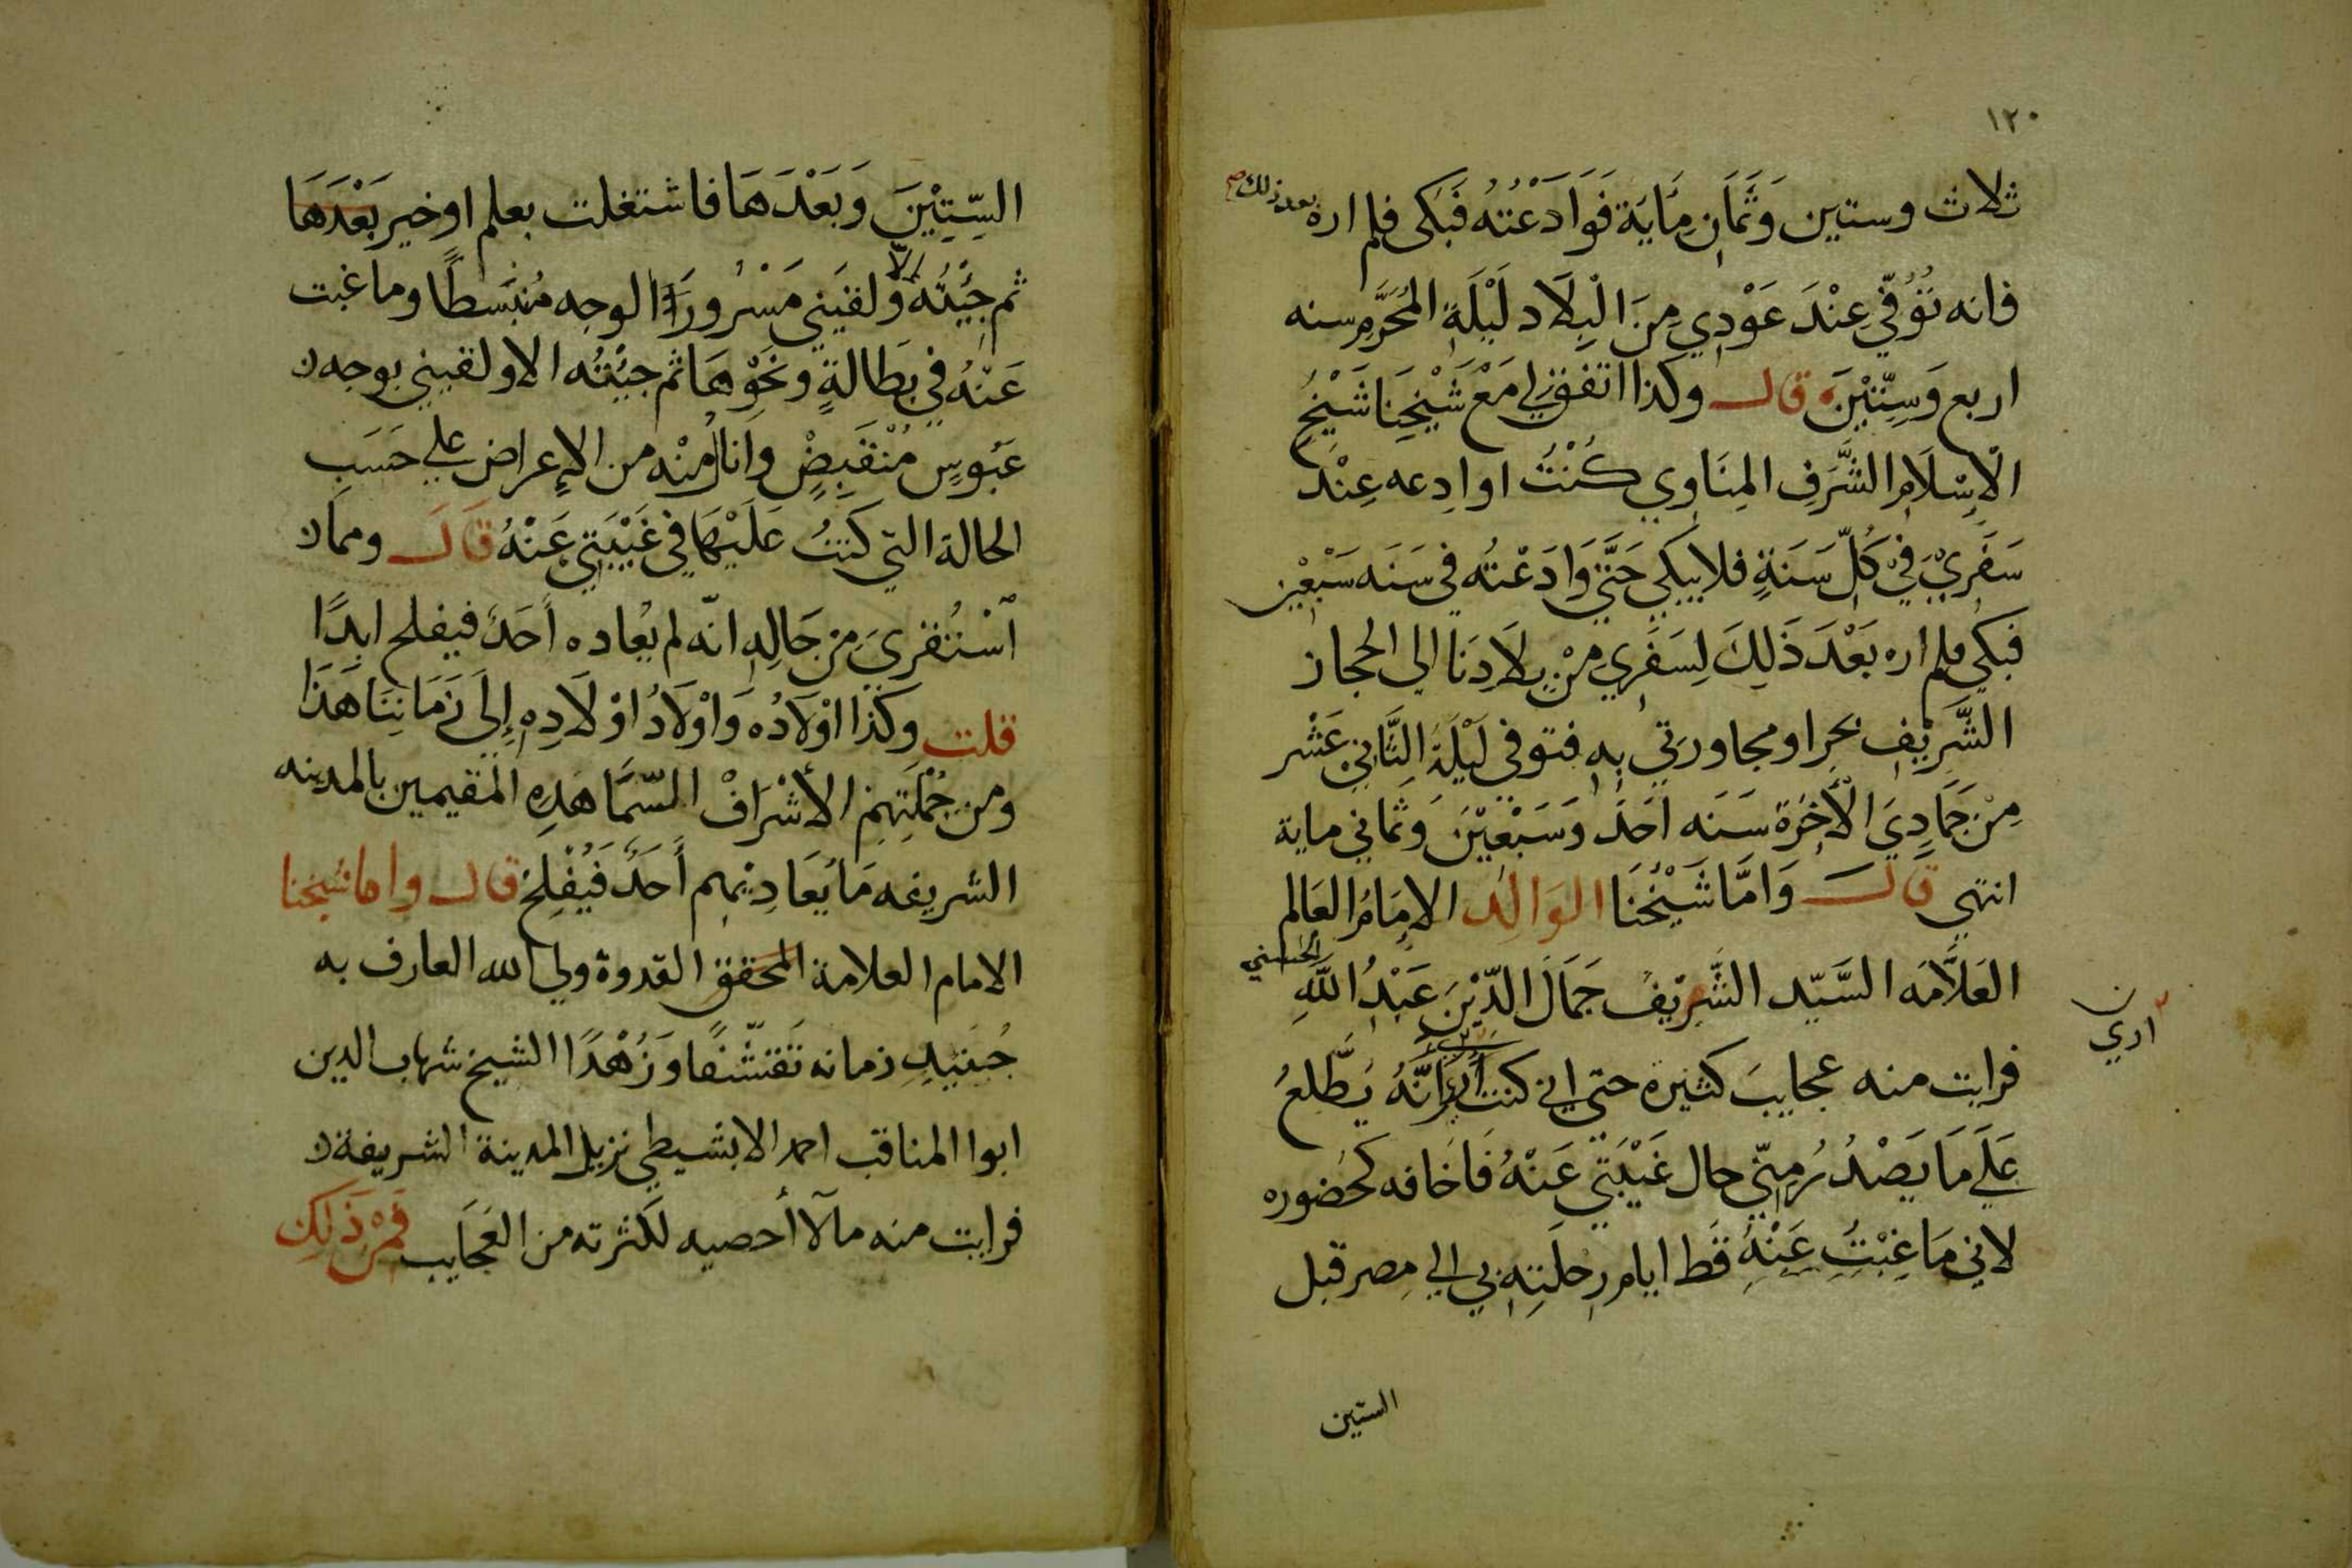 ١٢٠
ثلاث وستين وَثَمَانِ مِايَة فَوَادَعْتُهُ فَبَكى فلم اره بعد ذلك صح
فانه تُوُفّي عِنْدَ عَوْدِي مِنَ الْبِلَاد لَيْلَةِ المُحَرَّمِ سنه
اربع وَسِتّيْنَ قال وكذا اتفق لي مَعْ شَيْخِنَا شَيْخِ
الْاِسْلَامِ الشَّرَفِ المِنَاوِي كُنْتُ اوادِعه عِنْدَ
سَفَرِيْ فيْ كُلّ سَنَةٍ فلا يبكي حَتَّى وَادَعْتُه في سَنَه سَبْعِيْن
فبكى فلم اره بَعْدَ ذَلِكَ لِسَفَرِي مِنْ بِلَادِنَا الي الحجاز
الشَّرِيْفِ بحرا ومجاورتي بِهِ فتوفي لَيْلَةَ الثَّانِي عَشْر
مِنْ جَمَادِيَ الْآخِرَة سَنَه اَحَدَ وَسَبْعِيْنَ وَثَمَاني ماية
انتهي قَالَ وَامَّا شَيْخُنَا الوَالِد الاِمَامُ العَالم
العَلَّامَه السَّيّد الشَّرِيْفُ جَمَالَ الدّيْنِ عَبْدُ اللَّهِ الحسني
فرايت منه عجايبَ كثيرة حتي اني كنت اري انَّهُ يَطَّلِعُ
ن اري
عَلَي مَا يَصْدُرُ مِنّي حال غَيْبَتي عَنْهُ فَاَخَافه كحُضوره
لاني مَا غِبْتُ عَنْهُ قَط ايام رِحلَتِهِ بي الي مِصر قبل
الستين
السّتِيْنَ وَبَعْدَهَا فاشتغلت بعلم او خير بَعْدَهَا
ثم جِئْتُه الّا وَلقيَني مَسْرُورَ الوجه مُنْبَسطًا وما غبت
عَنْهُ في بَطَالةٍ ونَحْوِهَا ثم جئْتُه الا ولقيني بوجه
عَبُوسٍ مُنْقَبِضٍ وانال مِنْه من الاِعراض علي حَسَبِ
الحالة التي كنتُ عَلَيْهَا في غَيْبَتي عَنْهُ قَالَ ومما
اسْتُقْرِيَ من حَالِهِ انّه لم يُعاده اَحَدٌ فيفلح ابدًا
قلت وكَذا اوْلَادُه وَاوْلَادُ اوْلَادِهِ إِلَى زَمَانِنَا هَذَا
ومن جُمْلَتِهِم الأشْرَافْ السّمَّاهَدِه المقيمين بالمدينه
الشريفه مَا يُعَادِيْهِم أَحَدٌ فَيُفْلِحْ قال واما شيخنا
الامام العلامة المحقق القدوة ولي الله العارف به
جُنَيدِ زمانه تَقَشّفًا وَزُهْدًا الشيخ شهاب الدين
ابوا المناقب احمد الابشيطي نزيل المدينة الشريفة
فرايت منه مالآ أحصيه لكثرته من العَجَايب فَمِنْ ذَلِكَ